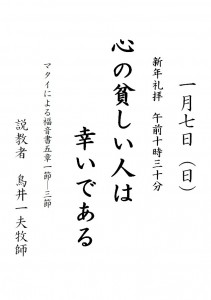 一月七日（日）
新年礼拝　午前十時三十分
心の貧しい人は
幸いである
マタイによる福音書五章一節―三節
説教者　鳥井一夫牧師